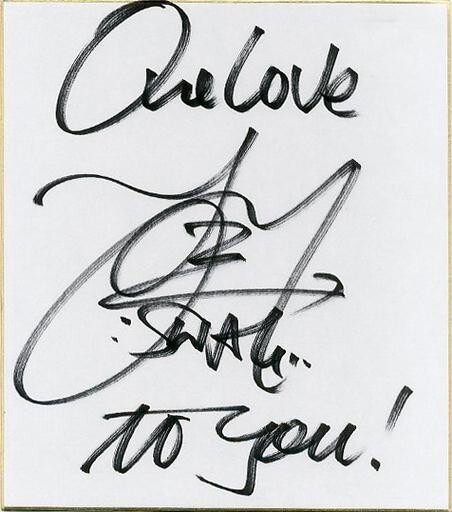 One Love
SWAK
to you!